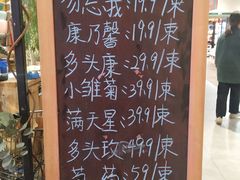 勿忘我:19.9/束
康乃馨:19.9/束
多头康:29.9/束
小雏菊:39.9/束
满天星:39.9/束
多头玫:49.9/束